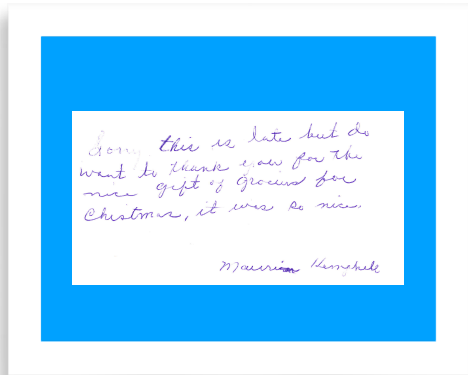 Sorry this is late but do
want to thank you for the
nice gift of grocries for
Christmas, it was so nice.